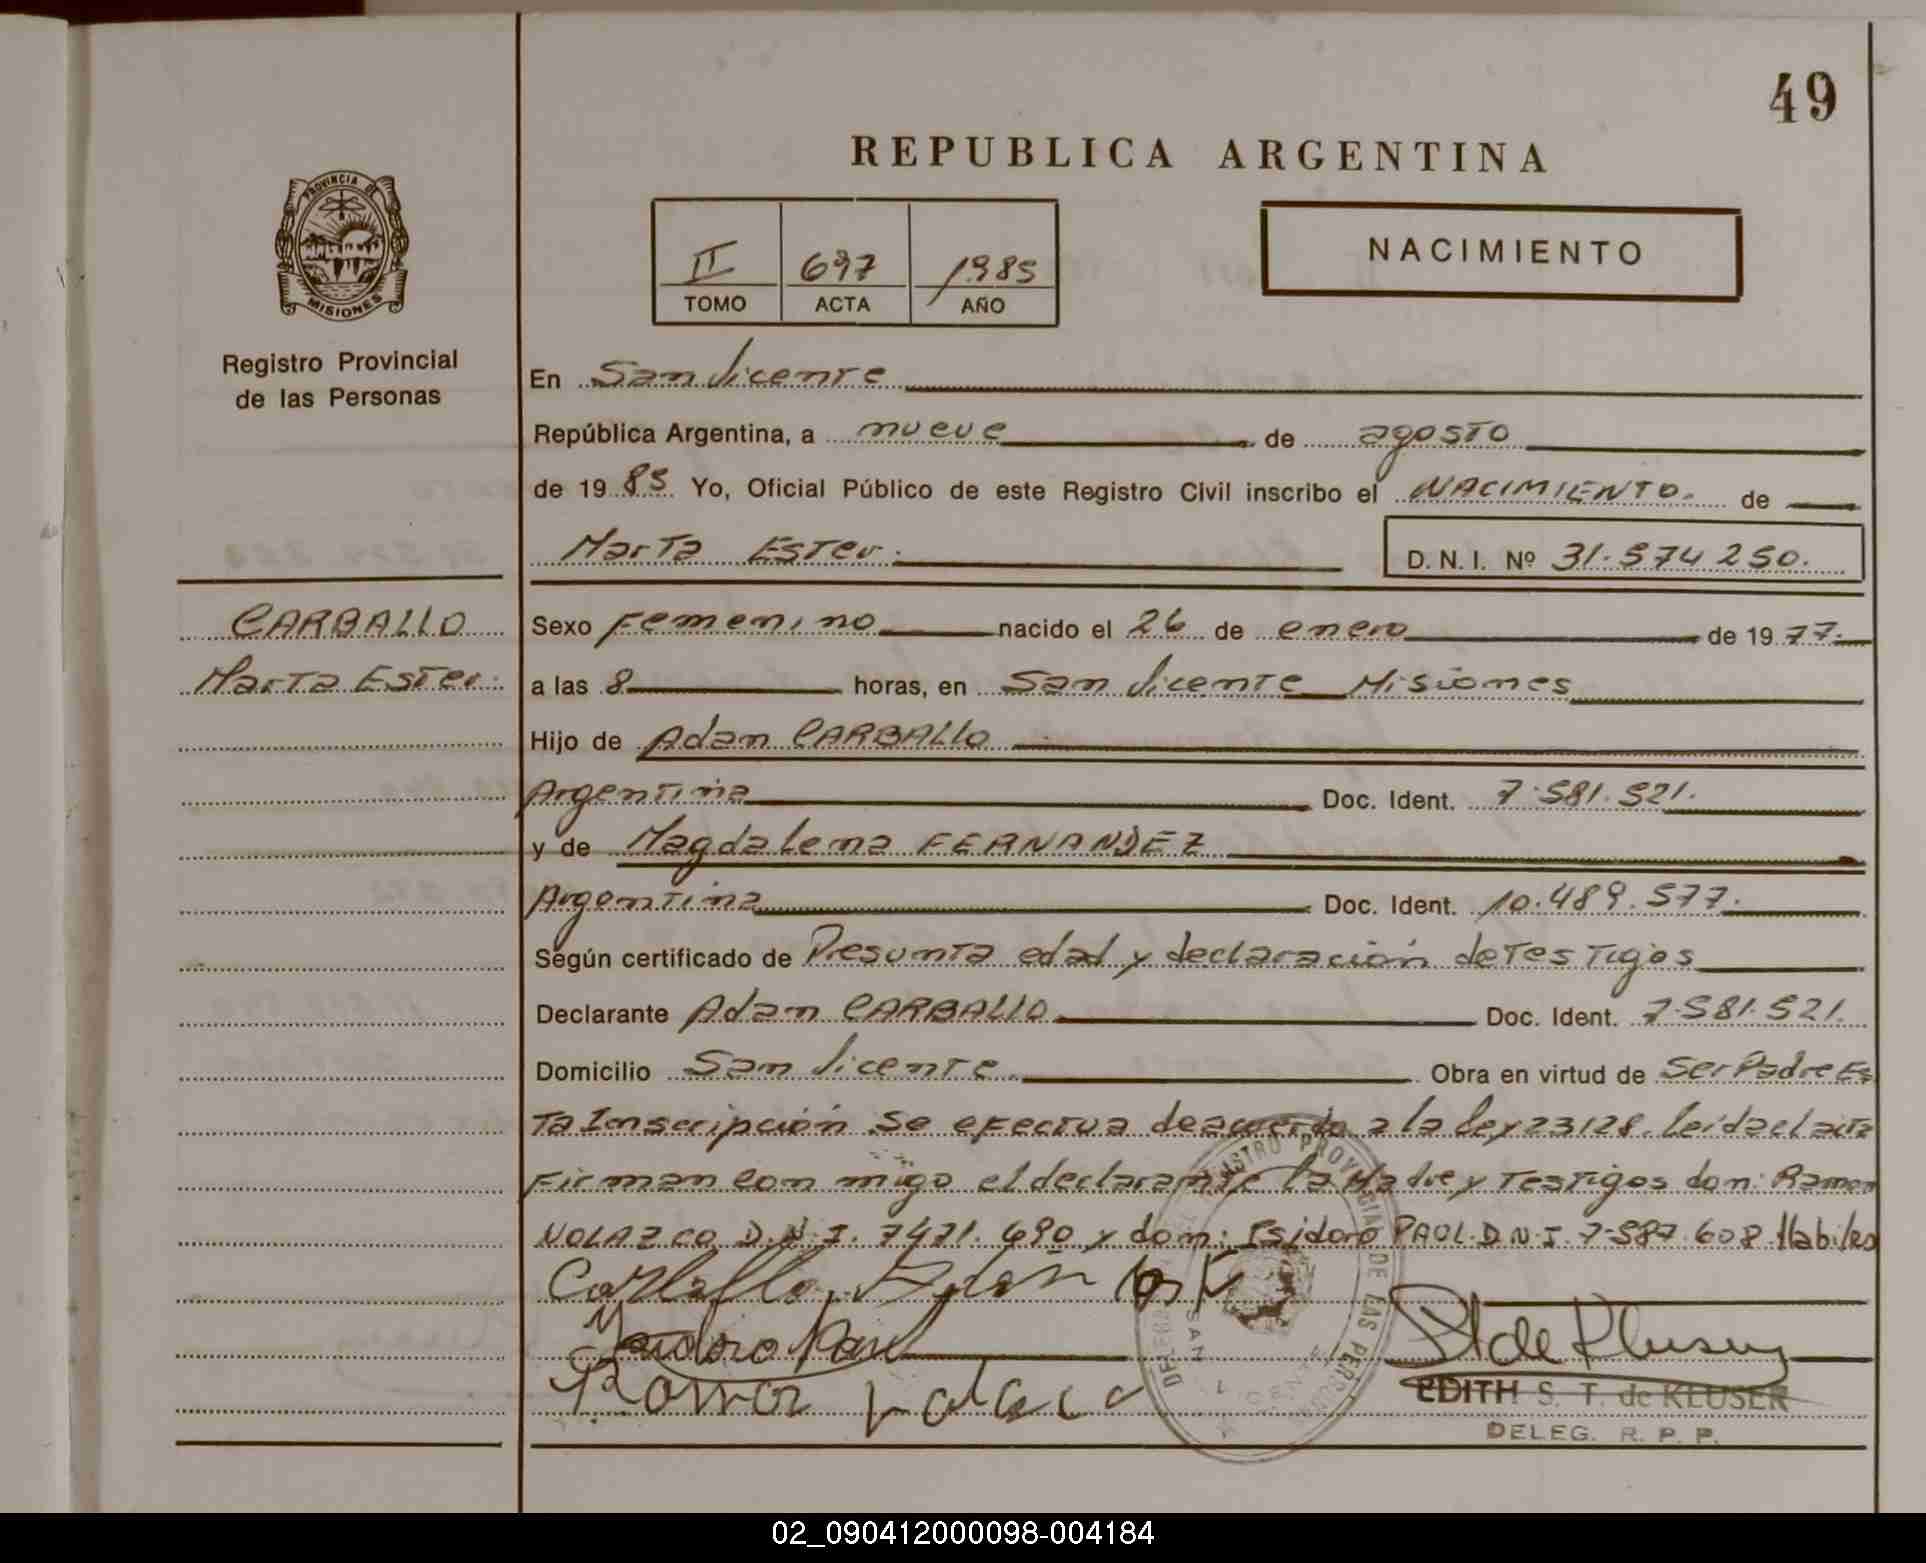 49
REPUBLICA ARGENTINA
PROVINCIA DE
MISIONES
Registro Provincial
de las Personas
II 697 1985
TOMO ACTA AÑO
NACIMIENTO
En San Vicente
República Argentina, a nueve de agosto
de 19 85 Yo, Oficial Público de este Registro Civil inscribo el NACIMIENTO. de
Marta Ester. D. N. I. Nº 31.574 250.
CARBALLO
Marta Ester.
Sexo Femenino nacido el 26 de enero de 19 77.
a las 8 horas, en San Vicente Misiones
Hijo de Adan CARBALLO
Argentina Doc. Ident. 7.581.521.
y de Magdalena FERNANDEZ
Argentina Doc. Ident. 10.489.577.
Según certificado de Presunta edad y declaración de Testigos
Declarante Adan CARBALLO Doc. Ident. 7.581.521.
Domicilio San Vicente. Obra en virtud de Ser Padre Es
Ta Inscripción se efectua deacuerdo a la ley 23128. leída el acta
Firman con migo el declarante la Madre y Testigos don: Ramon
NOLAZCO D.N.I. 7471.690 y don: Isidoro PAOL. D.N.I. 7.587.608 Habiles
Carballo Adan
Isidoro
Ramon
EDITH S. T. de KLUSER
DELEG. R. P. P.
02_090412000098-004184